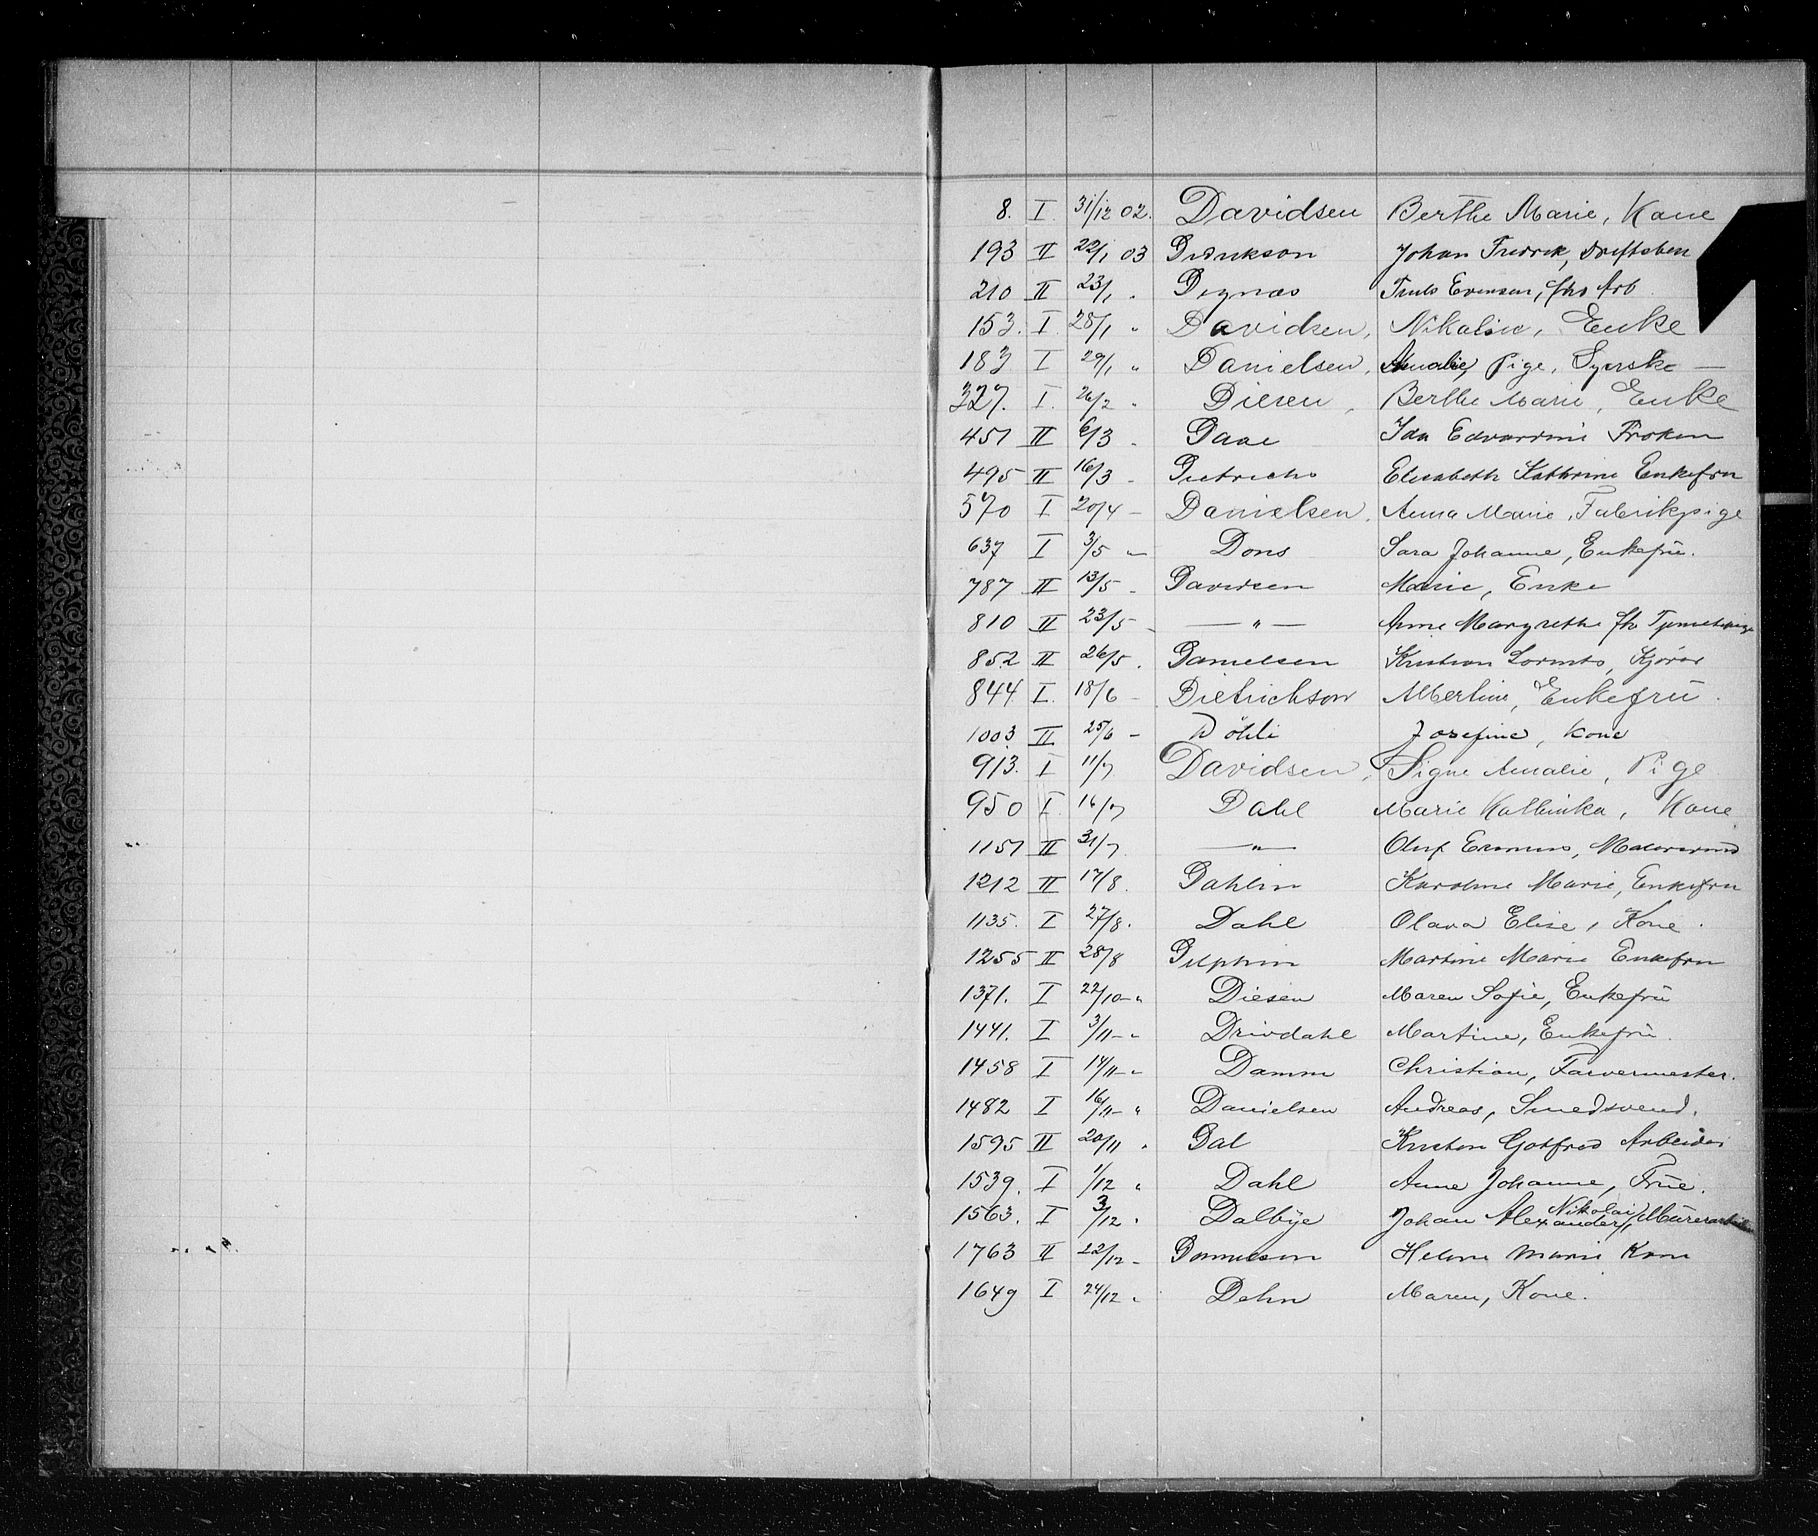 8. I. 31/12 02. Davidsen Berthe Marie, Kone
193 II 22/1 03 Didrikson Johan Fredrik, Driftsbest
210 II 23/1 " Dignæs Truls Evensen, fhv Arb
153. I. 28/1 " Davidsen, Nikoline, Enke
183 I 29/1 " Danielsen, Amalie, Pige, Syerske —
327. I. 26/2 " Diesen, Berthe Marie, Enke
451 II 6/3 - Daae Ida Edvardine Frøken
495 II 16/3 - Dietrichs Elisabeth Kathrine Enkefru
570 I 20/4 - Danielsen, Anna Marie, Fabrikpige
637 I 3/5 - Dons Sara Johanne, Enkefru.
787 II 13/5 - Davidsen Marie, Enke
810 II 23/5 - — " — Anne Margrethe fhv
852 II 26/5. Danielsen Kristian Kjører
844 I. 18/6 - Dietrichson Albertine, Enkefru.
1003. II 25/6 - Döhli Josefine, Kone
913. I 11/7 Davidsen, Signe Amalie, Pige.
950 I. 16/7 Dahl Marie Kathinka, Kone
1151 II 31/7. — " — Oluf Erasmus, Malersvend
1212 II 17/8. Dahlin Karoline Marie, Enkefru
1135. I 27/8. Dahl Olava Elise, Kone.
1255 II 28/8 Delphin Martine Marie Enkefru
1371. I 22/10 - " Diesen Maren Sofie, Enkefru
1441. I 3/11 - " Drivdahl Martine, Enkefru.
1458 I 14/11 - " Damm Christian, Farvermester.
1482 I 16/11 - " Danielsen Andreas, Smedsvend.
1595 II 20/11 " Dal Kristen Gotfred Arbeider
1539. I 1/12 " Dahl Anne Johanne, Frue.
1563. I 3/12 " Dalbye Johan Alexander Nikolai, Murerarbeider
1763 II 22/12 - Danielsen Helene Marie Kone
1649 I 24/12 " Dehn Maren, Kone.